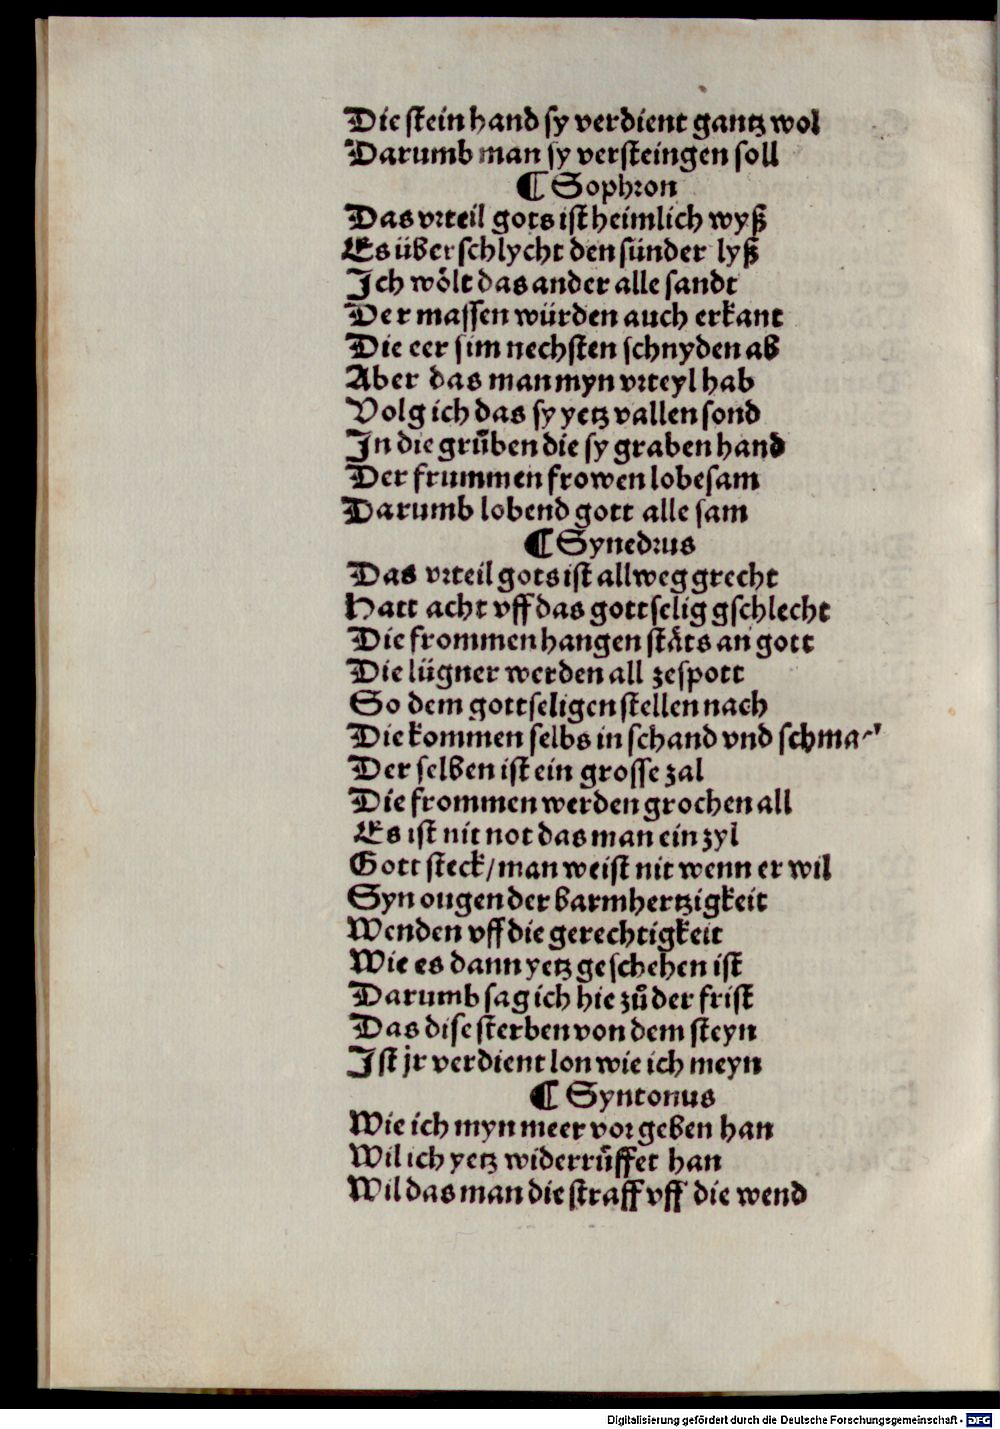 Die stein hand sy verdient gantz wol
Darumb man sy versteingen soll
¶ Sophron
Das vrteil gots ist heimlich wyß
Es überschlycht den sünder lyß
Ich wölt das ander alle sandt
Der massen würden auch erkant
Die eer sim nechsten schnyden ab
Aber das man myn vrteyl hab
Volg ich das sy yetz vallen sond
In die grůben die sy graben hand
Der frummen frowen lobesam
Darumb lobend gott alle sam
¶ Synedrus
Das vrteil gots ist allweg grecht
Hatt acht vff das gottselig gschlecht
Die frommen hangen stäts an gott
Die lügner werden all zespott
So dem gottseligen stellen nach
Die kommen selbs in schand vnd schma
Der selben ist ein grosse zal
Die frommen werden grochen all
Es ist nit not das man ein zyl
Gott steck / man weist nit wenn er wil
Syn ougen der barmhertzigkeit
Wenden vff die gerechtigkeit
Wie es dann yetz geschehen ist
Darumb sag ich hie zů der frist
Das dise sterben von dem steyn
Ist jr verdient lon wie ich meyn
¶ Syntonus
Wie ich myn meer vor geben han
Wil ich yetz widerrůffet han
Wil das man die straff vff die wend
Digitalisierung gefördert durch die Deutsche Forschungsgemeinschaft - DFG